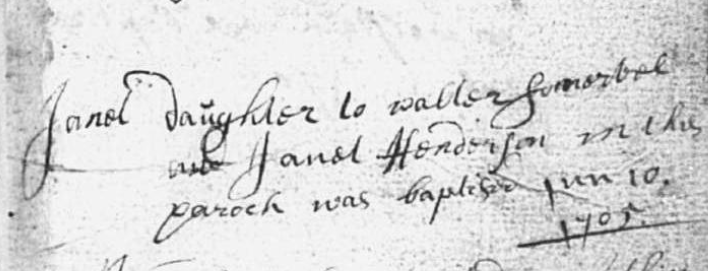 Janet daughter to walter Somervel
and Janet Henderson in this
paroch was baptised Jun 10.
1705